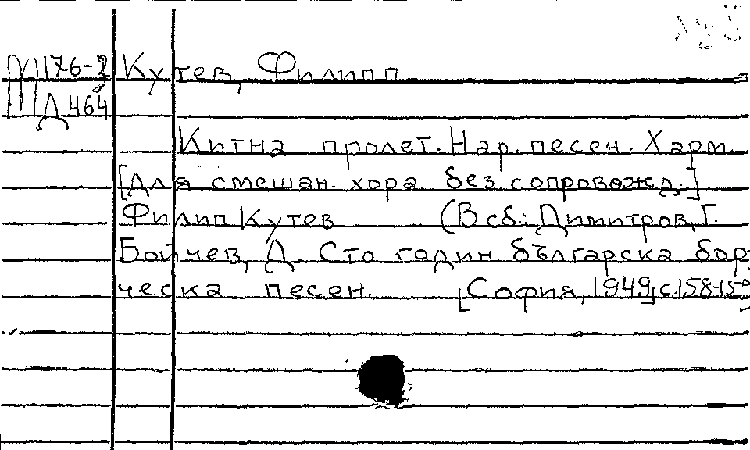 М 76-2 Кутев, Филипп
Д 464
Китна пролет. Нар. песен. Харм.
[Для смешан. хора без сопровожд.]
Филип Кутев (В сб.: Димитров, Г.
Бойчев, Д. Сто годин българска бор
ческа песен [София, 1949] с. 158-159